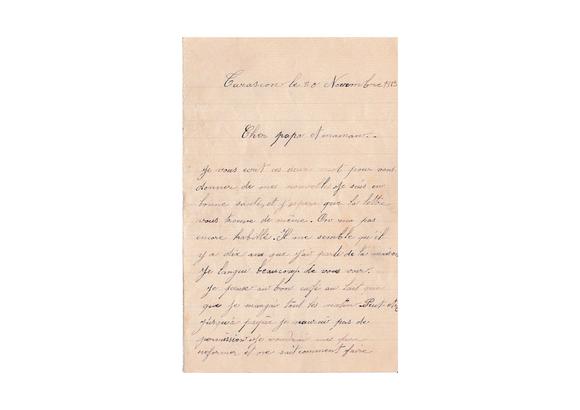 Tarascon le 20 Novembre 1913
Cher papa & maman.
Je vous écrit ces deux mot pour vous
donner de mes nouvelle Je suis en
bonne santé, et j'espere que la lettre
vous trouve de même. On ma pas
encore habillé. Il me semble qu'il
y a dix ans que j'ai parti de la maison
Je langui beaucoup de vous voir.
Je pense au bon cafe au lait que
que je mangais tout les matin. Peut être
jusqu'a pâques je naurai pas de
permission Je voudrai me faire
reformer et ne sait comment faire